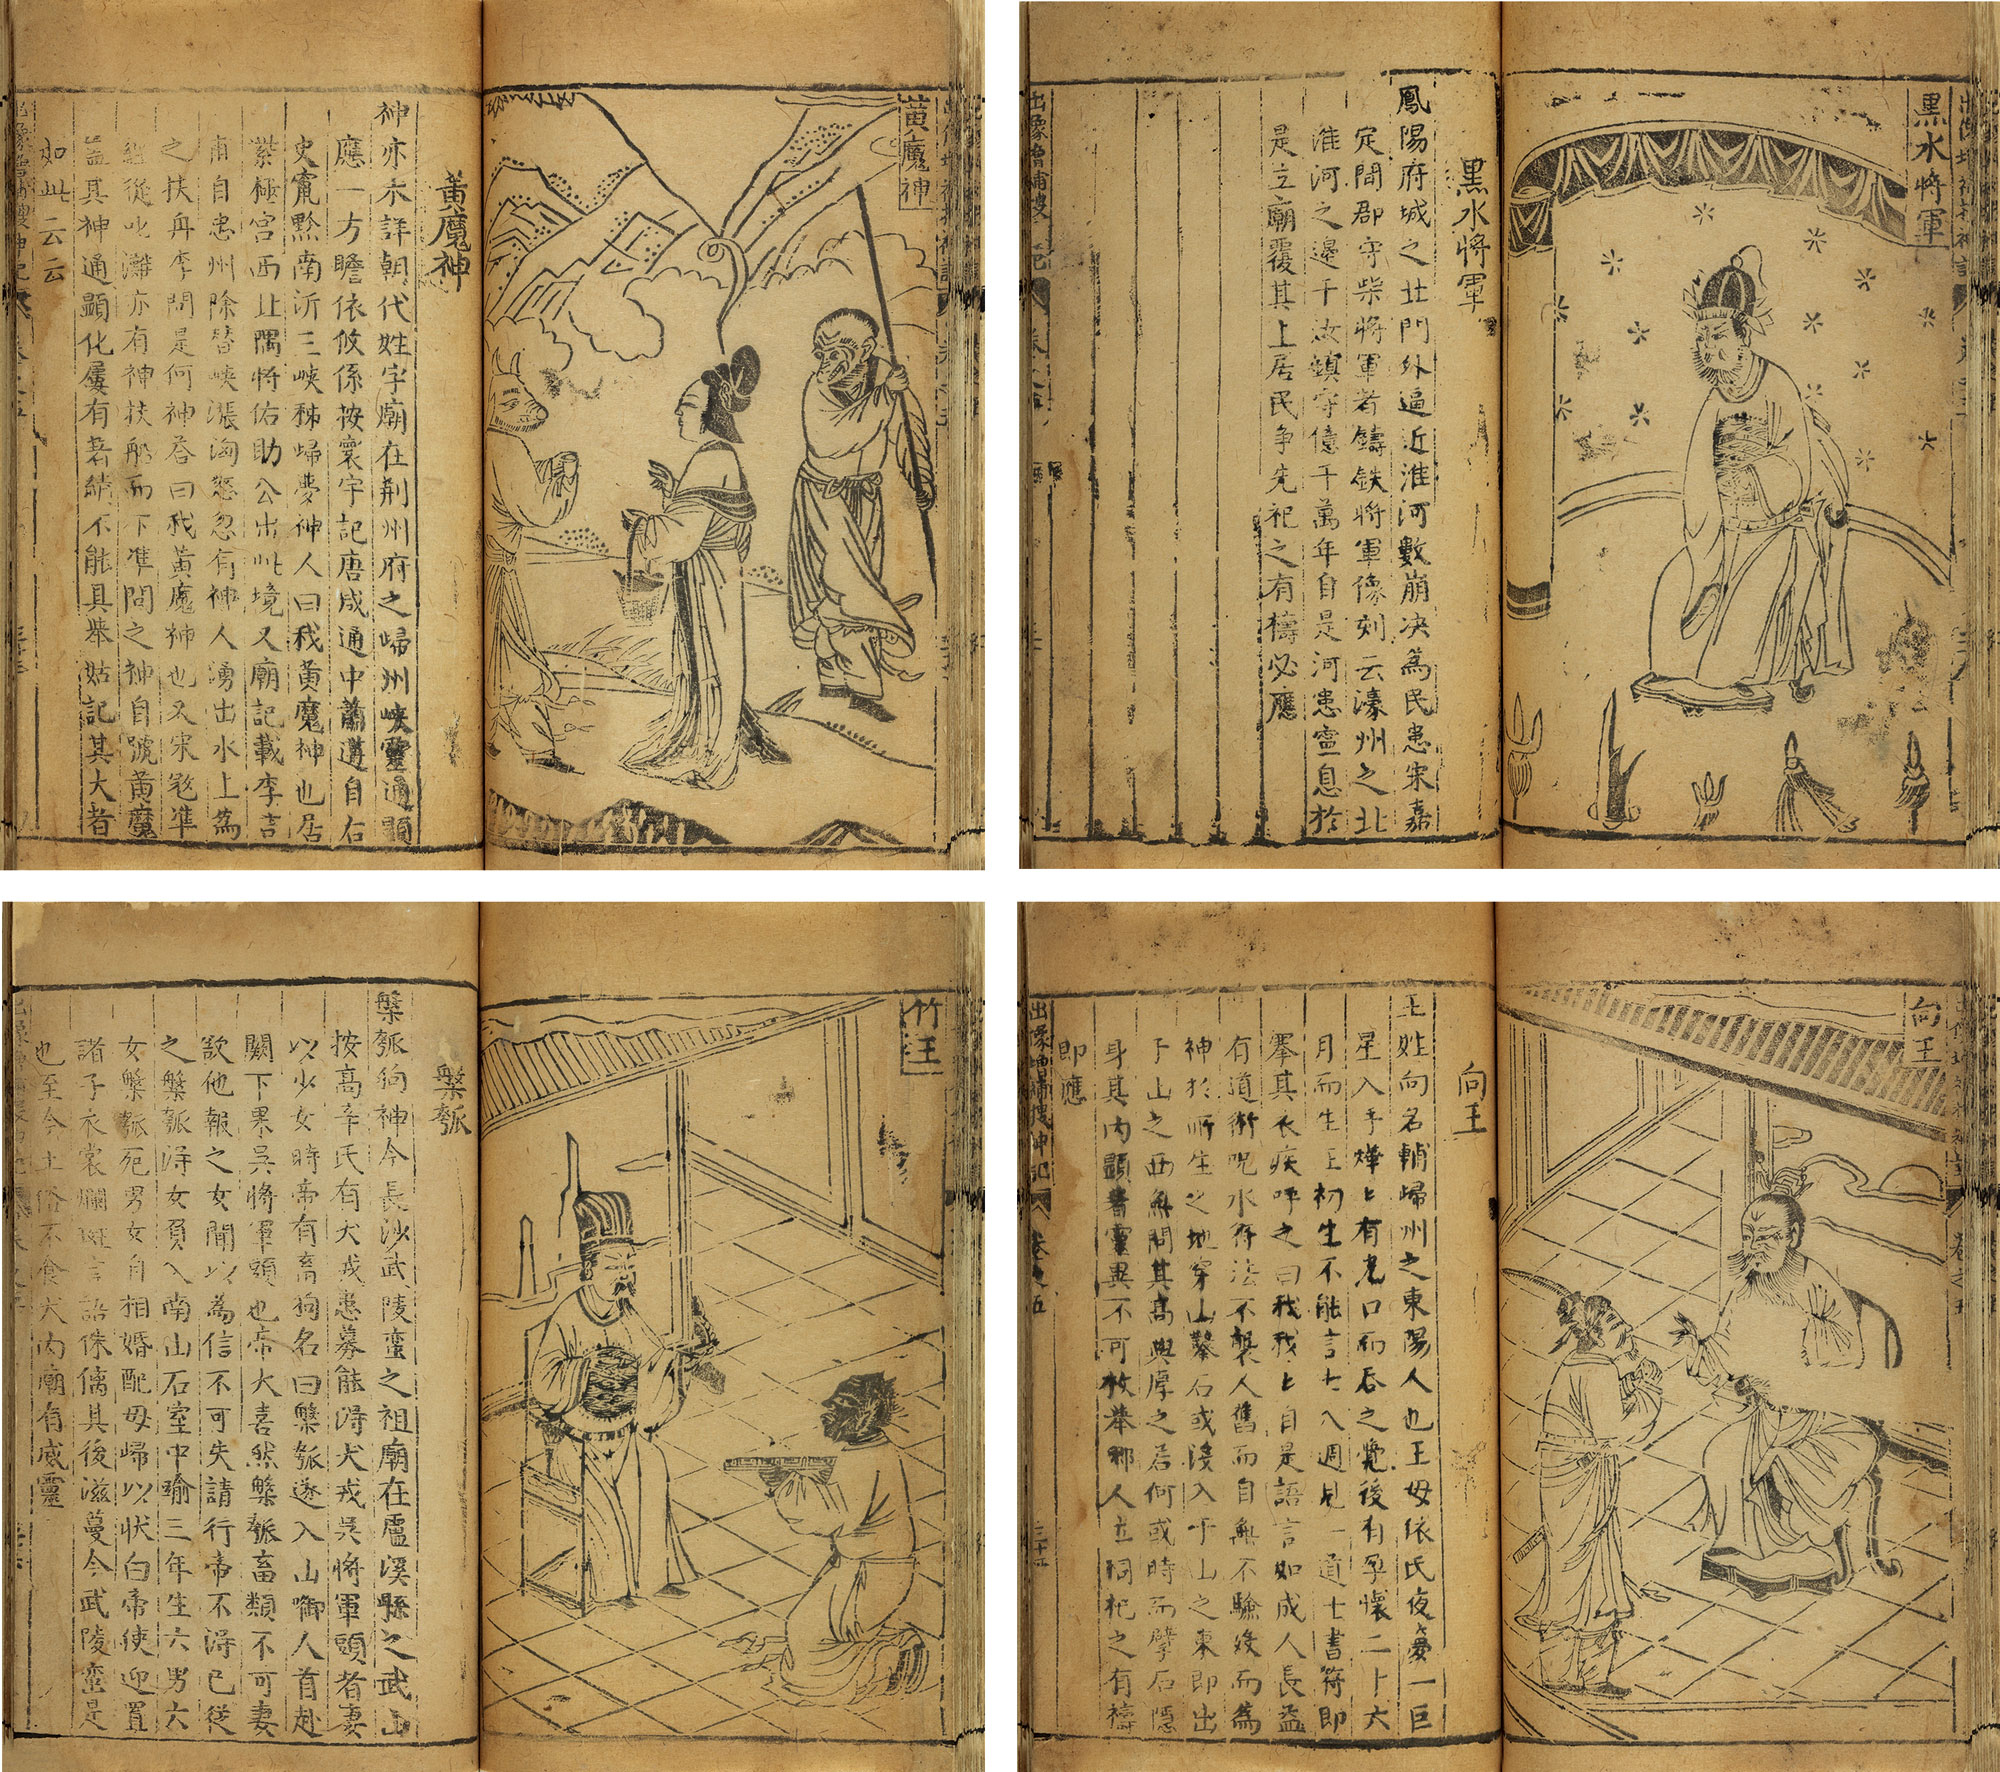 黃魔神
黃魔神
神亦未詳朝代姓字廟在荆州府之歸州峽靈通顯
應一方瞻依攸係按寰宇記唐咸通中蕭遘自右
史竄黔南泝三峽秭歸夢神人曰我黃魔神也居
紫極宮西北隅將佑助公出此境又廟記載李吉
甫自忠州除替峽漲洶怒忽有神人湧出水上為
之扶舟李問是何神答曰我黃魔神也又宋寇準
經從叱灘亦有神扶船而下準問之神自號黃魔
葢其神通顯化屢有著績不能具舉姑記其大者
如此云云
黑水將軍
黑水將軍
鳳陽府城之北門外逼近淮河數崩决為民患宋嘉
定間郡守柴將軍者鑄鉄將軍像刻云濠州之北
淮河之邊千汝鎮守億千萬年自是河患寧息於
是立廟覆其上居民爭先祀之有禱必應
出像增補搜神記
竹王
槃瓠
槃瓠狗神今長沙武陵蛮之祖廟在盧溪縣之武山
按高辛氏有犬戎患募能淂犬戎吳將軍頭者妻
以少女時帝有畜狗名曰槃瓠遂入山啣人首赴
闕下果吳將軍頭也帝大喜然槃瓠畜類不可妻
欲他報之女聞以為信不可失請行帝不淂已從
之槃瓠淂女負入南山石室中踰三年生六男六
女槃瓠死男女自相婚配母歸以状白帝使迎置
諸子衣裳斕斑言語侏㒧其後滋蔓今武陵蛮是
也至今土俗不食犬肉廟有威靈
向王
向王
王姓向名輔歸州之東陽人也王母依氏夜夢一巨
星入手燁〻有光口而吞之覺後有孕懷二十六
月而生王初生不能言七八週見一道士書符即
搴其衣疾呼之曰我我〻自是語言如成人長盗
有道術呪水符法不襲人舊而自無不驗後而為
神於所生之地穿山擊石或後入乎山之東即出
于山之西無問其高與厚之若何或時而擘石隱
身其內顯著靈異不可枚舉鄉人立祠祀之有禱
即應
出像增補搜神記 卷之五 三十五